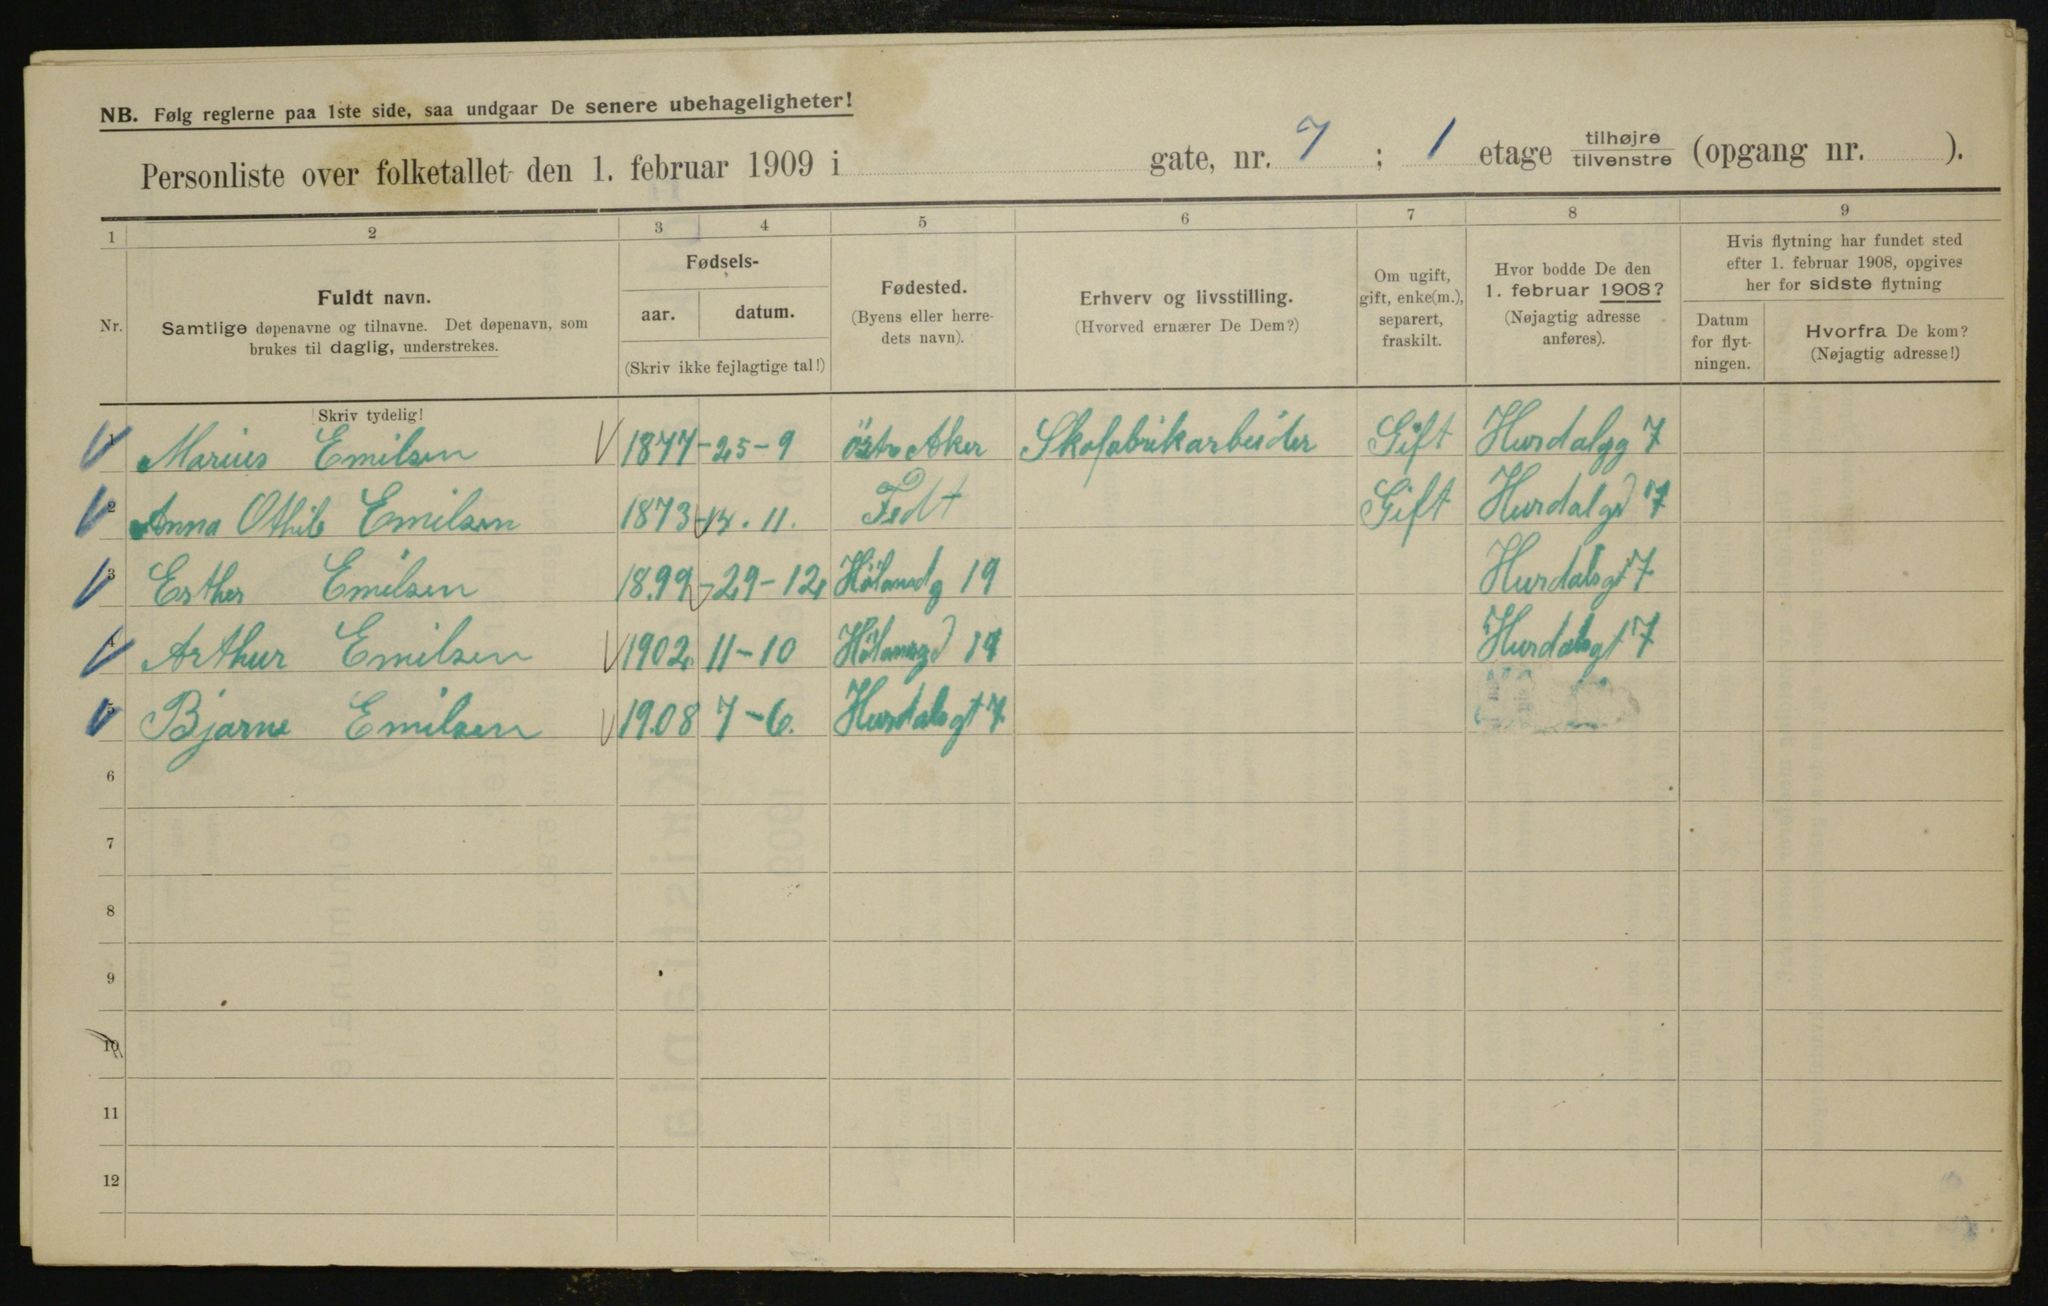 NB. Følg reglerne paa 1ste side, saa undgaar De senere ubehageligheter!
Personliste over folketallet den 1. februar 1909 i gate, nr. 7 ; 1 etage tilhøjre / tilvenstre (opgang nr. ).
1 2 3 4 5 6 7 8 9
Nr.
Fuldt navn.
Samtlige døpenavne og tilnavne. Det døpenavn, som
brukes til daglig, understrekes.
Fødsels-
aar. datum.
(Skriv ikke fejlagtige tal!)
Fødested.
(Byens eller herre-
dets navn).
Erhverv og livsstilling.
(Hvorved ernærer De Dem?)
Om ugift,
gift, enke(m.),
separert,
fraskilt.
Hvor bodde De den
1. februar 1908?
(Nøjagtig adresse
anføres).
Hvis flytning har fundet sted
efter 1. februar 1908, opgives
her for sidste flytning
Datum
for flyt-
ningen.
Hvorfra De kom?
(Nøjagtig adresse!)
Skriv tydelig!
1 Marius Emilsen 1877 - 25 - 9 östr Aker Skofabrikarbeider Gift Hurdalgg 7
2 Anna Othil Emilsen 1873 - 11. Fedt Gift Hurdalgd 7
3 Esther Emilsen 1899 - 29 - 12 Hölandg 19
Hurdalsgt 7
4 Arthur Emilsen 1902 11 - 10 19 Hurdalsgt 7
5 Bjarne Emilsen 1908 7 - 6. Hurdalsgt 7
6
7
8
9
10
11
12